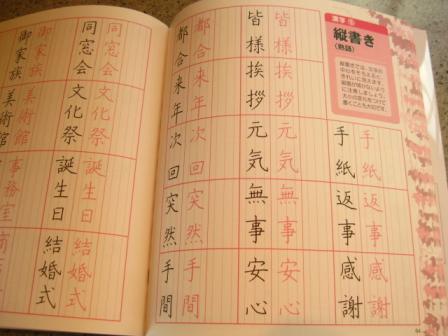 漢字⑤
縦書き
(熟語)
手紙返事感謝
手紙返事感謝
皆様挨拶元気無事安心
皆様挨拶元気無事安心
都合来年次回突然手間
都合来年次回突然手間
同窓会文化祭誕生日結婚式
同窓会文化祭誕生日結婚式
御家族美術館事務室
御家族美術館